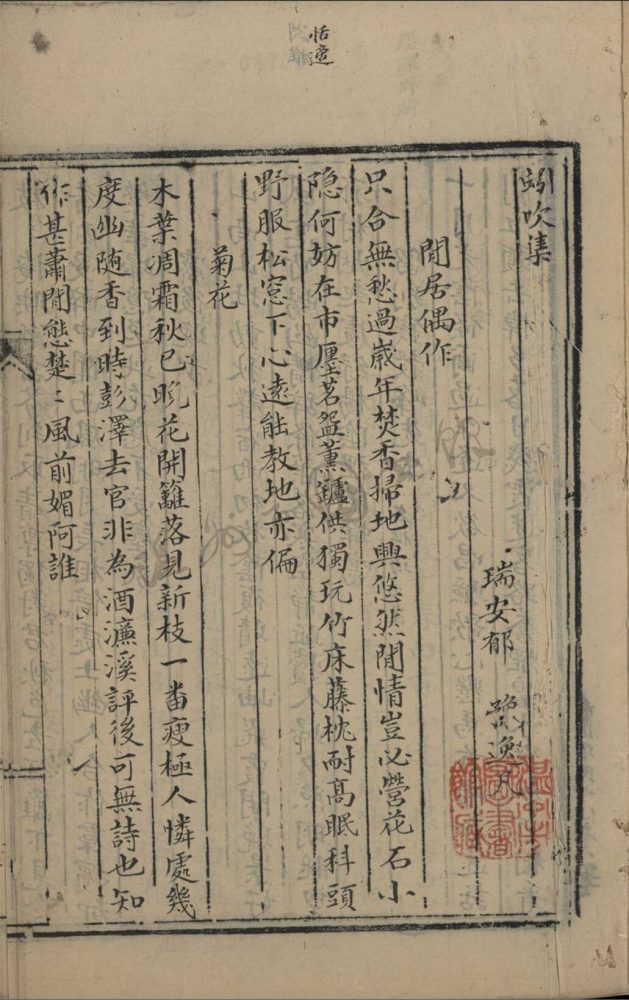 恬適
蚓吹集
瑞安郁
閒居偶作
只合無愁過歲年焚香掃地興悠然閒情豈必營花石小
隐何妨在市廛茗盌薰鑪供獨玩竹床藤枕耐高眠科頭
野服松窓下心遠能教地亦偏
菊花
木葉凋霜秋已晩花開籬落見新枝一番瘦極人憐處幾
度幽随香到時彭澤去官非為酒濂溪評後可無詩也知
作甚蕭閒態楚〻風前媚阿誰